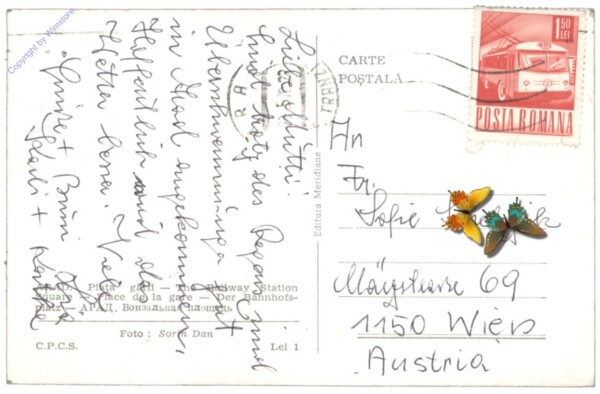 Copyright by Wienstore
CARTE
POȘTALĂ
1,50
LEI
POSTA ROMANA
Liebe Mutti!
Sind trotz des Regens und
Überschwemmung gut
in Arad angekommen,
Hoffentlich wird das
Wetter besser. Viele
Grüße + Bussi
Karli +
An
Fr.
Sofie
Märzstrasse 69
1150 Wien
Austria
Editura Meridiane
ARAD. Piața gării — The Railway Station
Square — Place de la gare — Der Bahnhofs-
platz — АРАД. Вокзальная площадь
Foto : Sorin Dan
C.P.C.S.
Lei 1